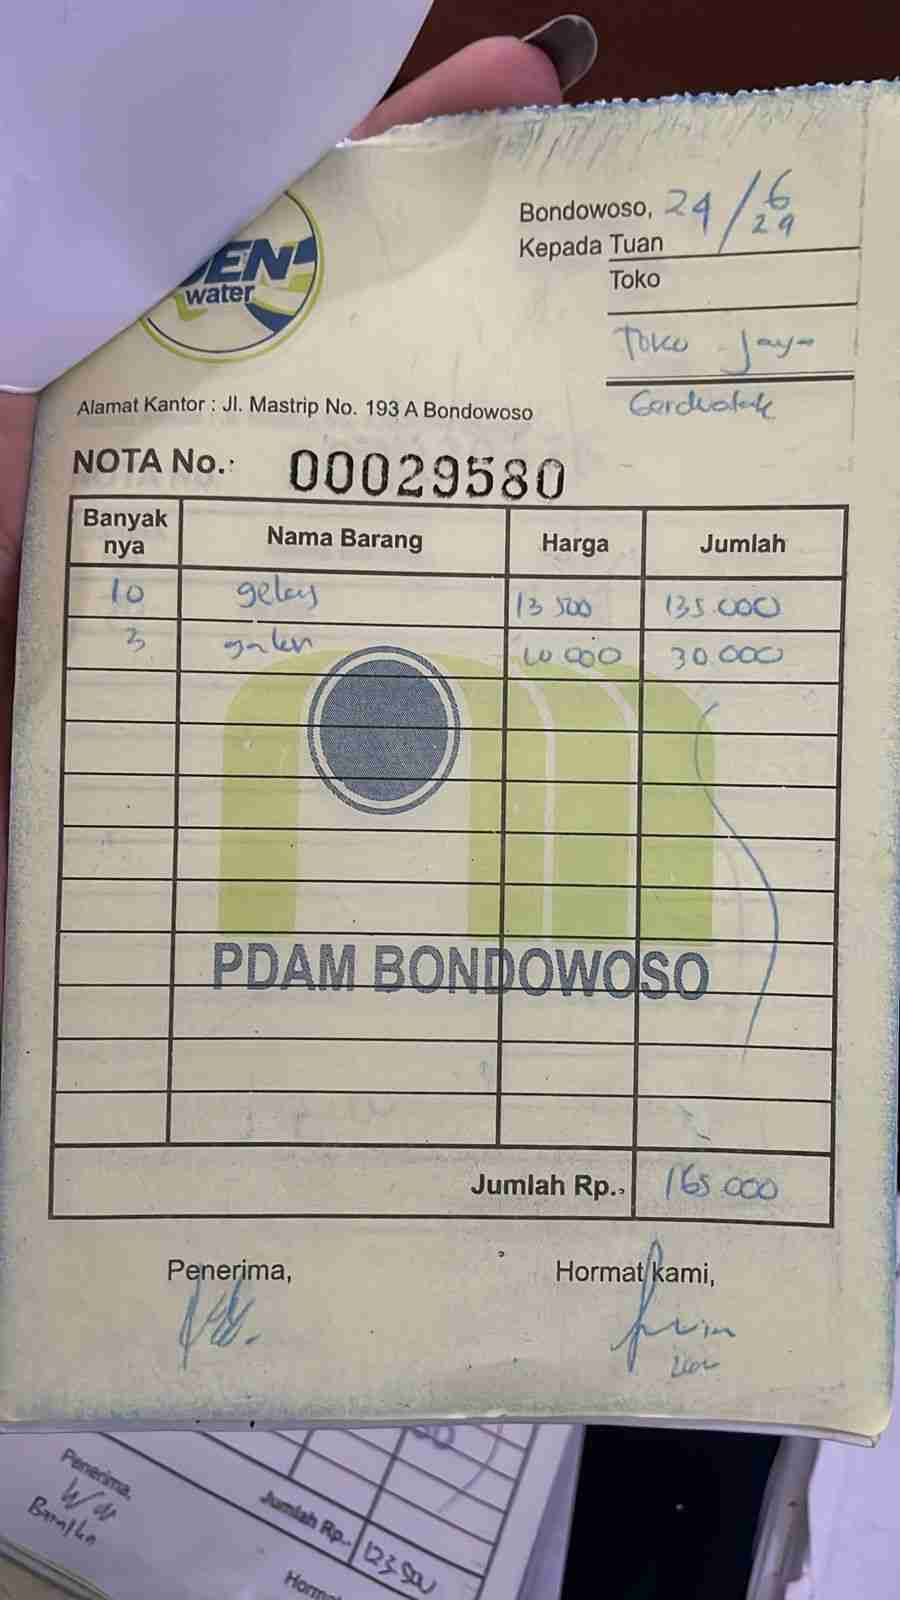 EN
water
Bondowoso, 24/6 24
Kepada Tuan
Toko
Toko Jaya
Alamat Kantor : Jl. Mastrip No. 193 A Bondowoso
NOTA No.: 00029580
Banyak nya Nama Barang Harga Jumlah
10 gelas 13 500 135.000
3 galon 10 000 30.000
PDAM BONDOWOSO
Jumlah Rp.. 165.000
Penerima, Hormat kami,
Penerima,
Jumlah Rp.. 123.500
Horma